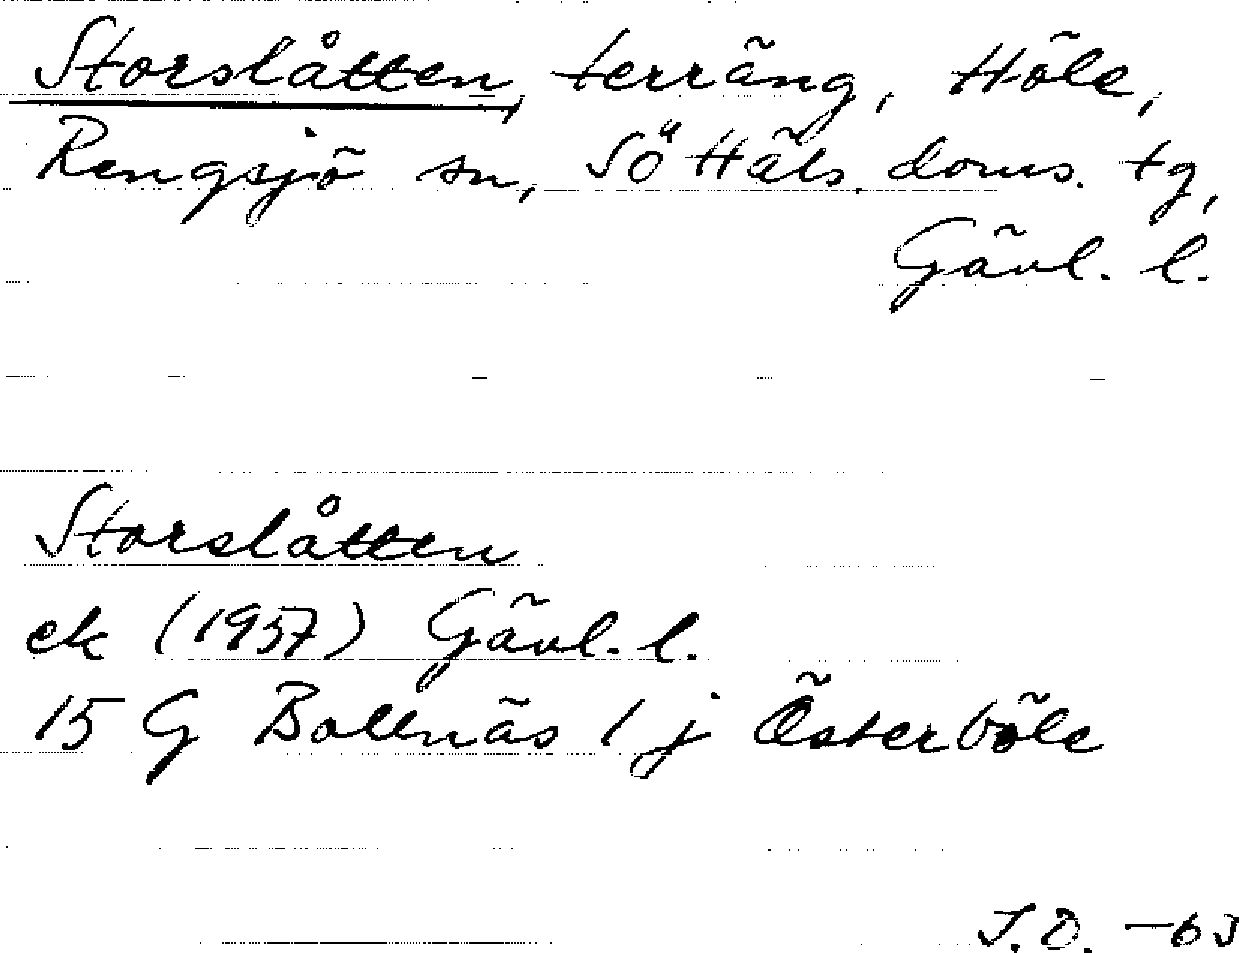 Storslåtten, terräng, Höle,
Rengsjö sn, Sö Häls. doms. tg,
Gävl. l.
Storslåtten
ek (1957) Gävl. l.
15 G Bollnäs 1 j Österböle
S.D. -63